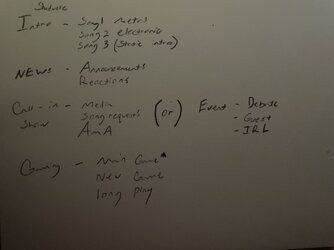 Intro - Song 1 Metro
Song 2 electronic
Song 3 (Static intro)
NEWS - Announcements
Reactions
Call-in - Media
Show Song requests (or) Event - Debate
AmA - Guest
- IRL
Gaming - Main Game*
New Game
long play